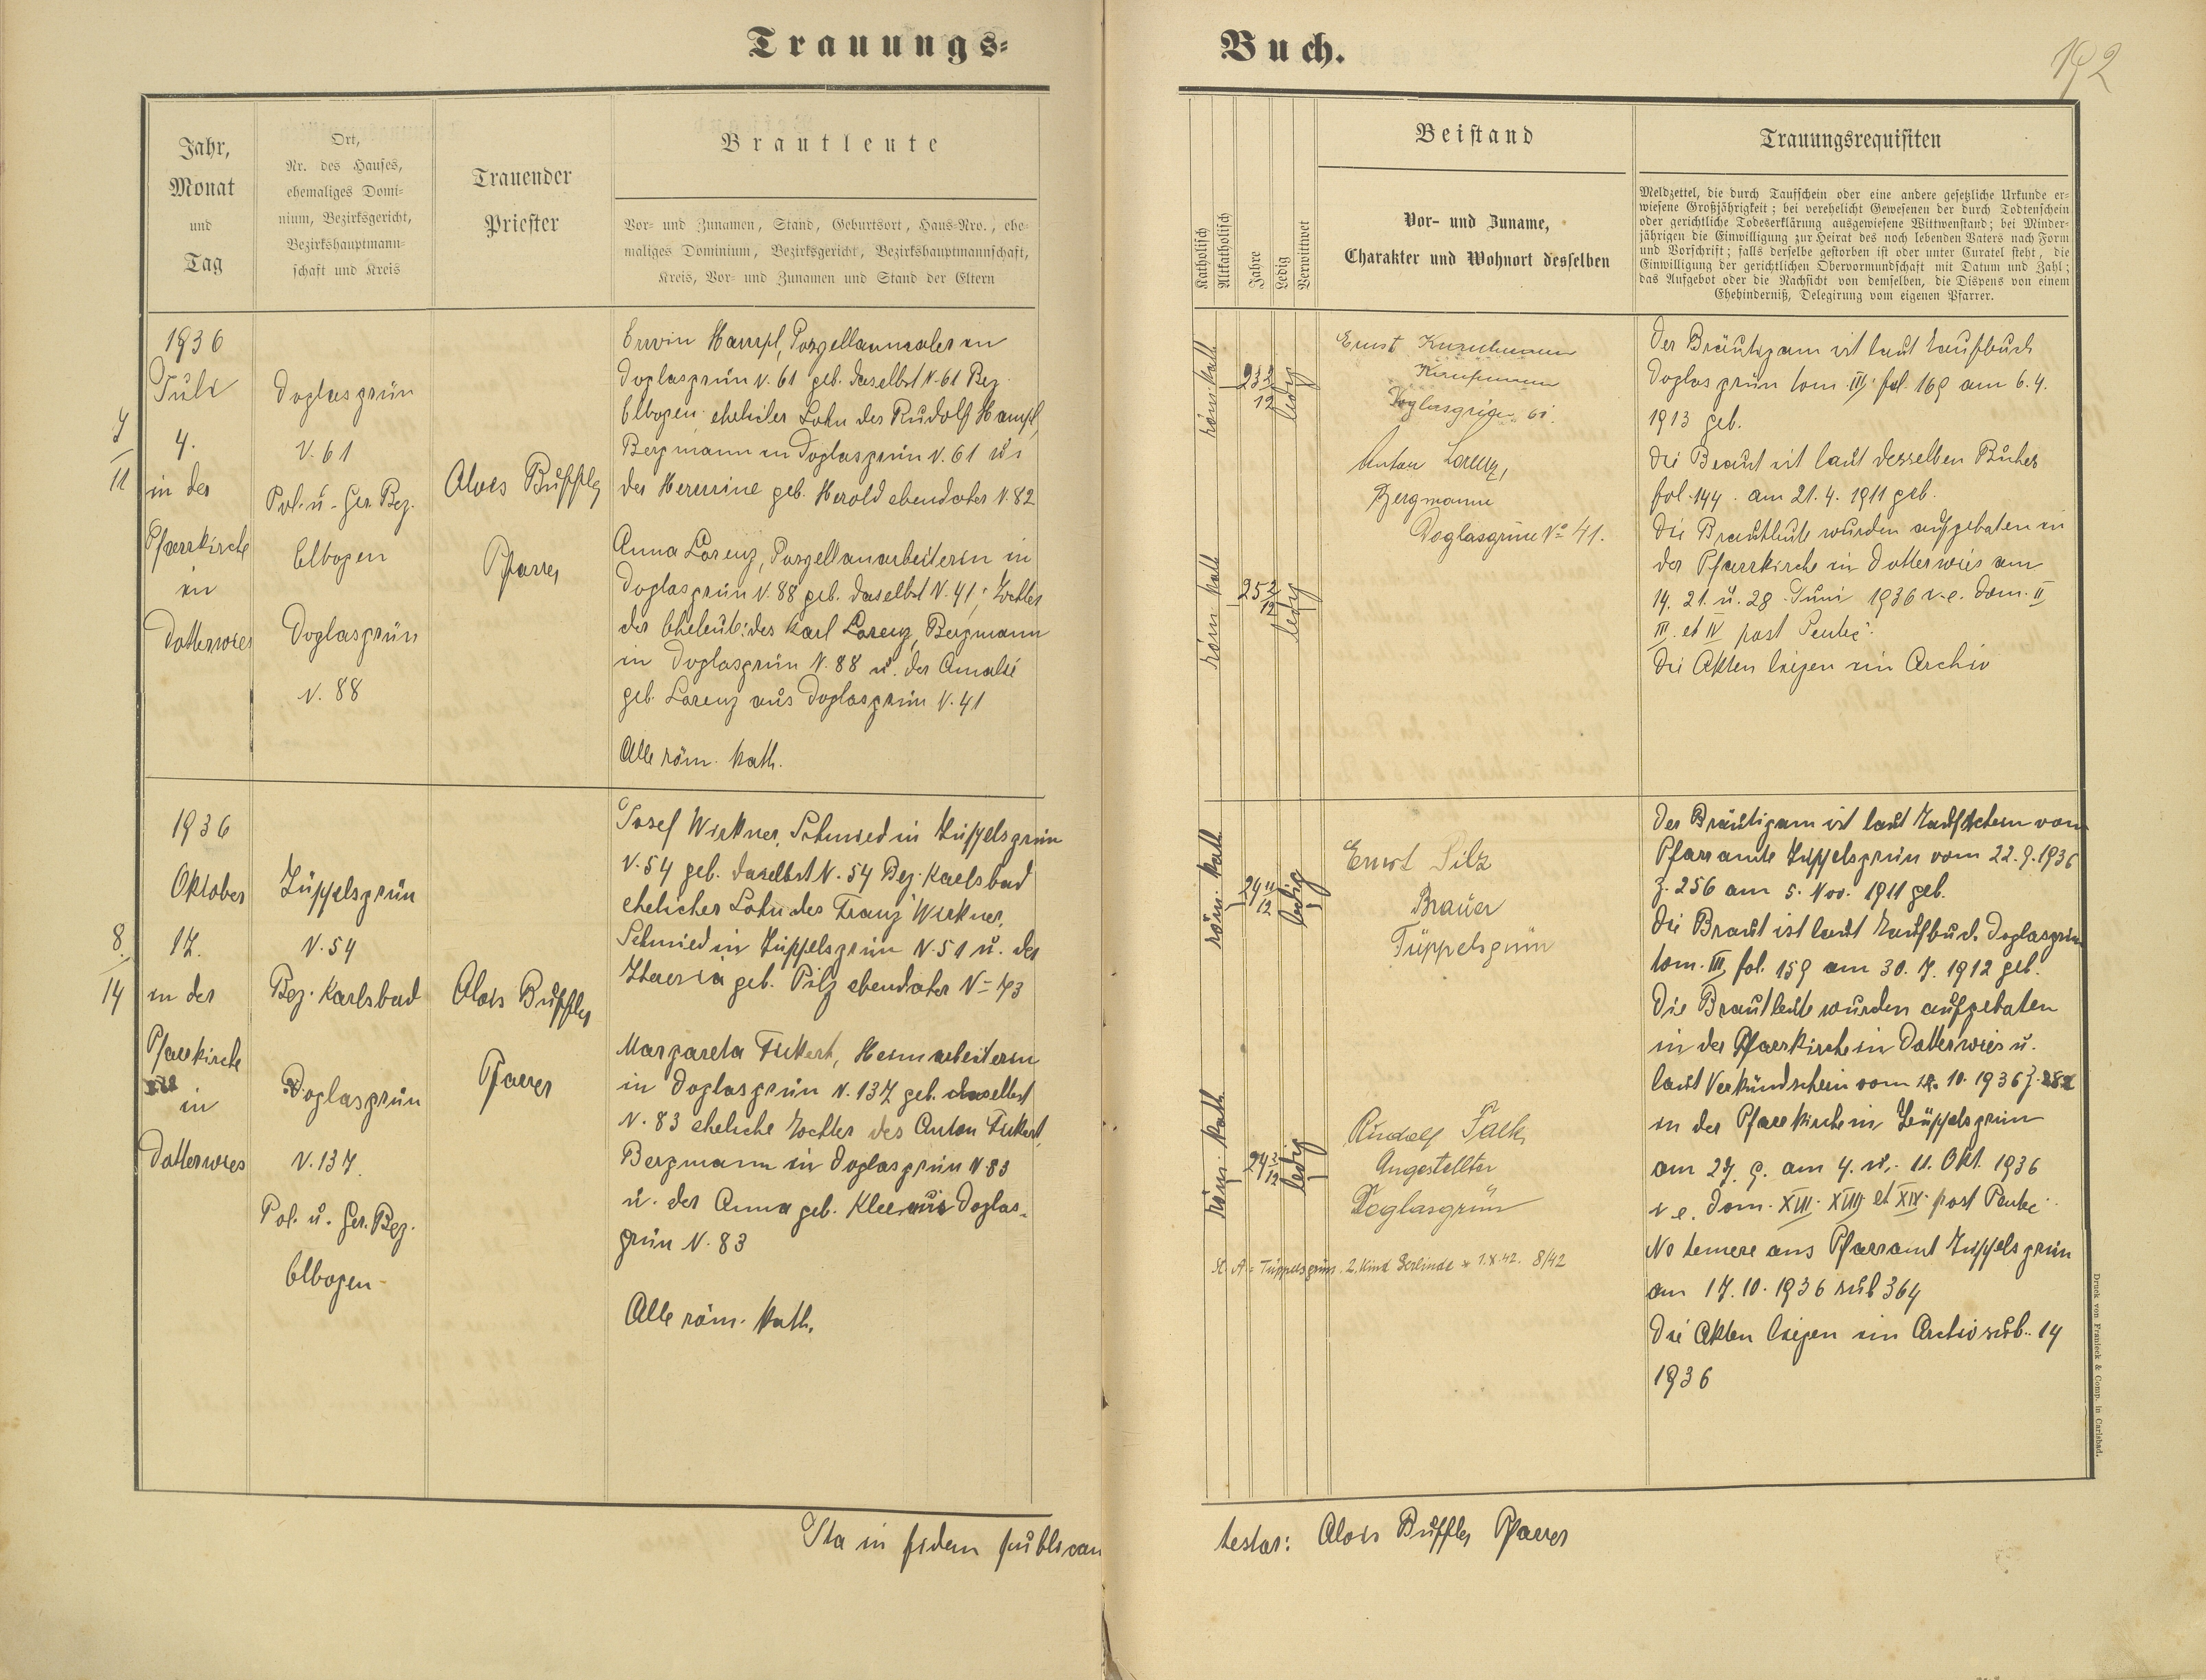 Trauungs=
Buch.
192
Jahr,
Monat
und
Tag
Ort,
Nr. des Hauses,
ehemaliges Domi-
nium, Bezirksgericht,
Bezirkshauptmann-
schaft und Kreis
Trauender
Priester
Brautleute
Vor- und Zunamen, Stand, Geburtsort, Haus-Nro., ehe-
maliges Dominium, Bezirksgericht, Bezirkshauptmannschaft,
Kreis, Vor- und Zunamen und Stand der Eltern
Katholisch
Altkatholisch
Jahre
Ledig
Verwittwet
Beistand
Vor- und Zuname,
Charakter und Wohnort desselben
Trauungsrequisiten
Meldzettel, die durch Taufschein oder eine andere gesetzliche Urkunde er-
wiesene Großjährigkeit; bei verehelicht Gewesenen der durch Todtenschein
oder gerichtliche Todeserklärung ausgewiesene Wittwenstand; bei Minder-
jährigen die Einwilligung zur Heirat des noch lebenden Vaters nach Form
und Vorschrift; falls derselbe gestorben ist oder unter Curatel steht, die
Einwilligung der gerichtlichen Obervormundschaft mit Datum und Zahl;
das Aufgebot oder die Nachsicht von demselben, die Dispens von einem
Ehehinderniß, Delegirung vom eigenen Pfarrer.
1936
Juli
4.
in der
Pfarrkirche
in
Dotterwies
11
Doglasgrün
N. 61
Pol. u. Ger. Bez.
Elbogen
Doglasgrün
N. 88
Alois Buffler
Pfarrer
Erwin Hampl, Porzellanmaler in
Doglasgrün N. 61 geb. daselbst N. 61 Bez.
Elbogen ehelicher Sohn des Rudolf Hampl,
Bergmann in Doglasgrün N. 61 u.
der Hermine geb. Herold ebendaher N. 82
Anna Lorenz, Porzellanarbeiterin in
Doglasgrün N. 88 geb. daselbst N. 41; Tochter
der Eheleute: des Karl Lorenz, Bergmann
in Doglasgrün N. 88 u. der Amalie
geb. Lorenz aus Doglasgrün N. 41
Alle röm. kath.
röm. kath
23 3/12
ledig
röm kath
25 2/12
ledig
Ernst
Doglasgrün 61.
Anton Lorenz,
Bergmann
Doglasgrün No 41.
Der Bräutigam ist laut Taufbuch
Doglasgrün tom. III. fol. 169 am 6. 4.
1913 geb.
Die Braut ist laut desselben Buches
fol. 144. am 21. 4. 1911 geb.
Die Brautleute wurden aufgeboten in
der Pfarrkirche in Dotterwies am
14. 21. u. 28. Juni 1936 i. e. Dom. II
III. et IV post Pentec.
Die Akten liegen im Archiv
1936
Oktober
17.
in der
Pfarrkirche
in
Dotterwies
8.
14
Tüppelsgrün
N. 54
Bez. Karlsbad
Doglasgrün
N. 137.
Pol. u. Ger. Bez.
Elbogen
Alois Buffler
Pfarrer
Josef Wirkner, Schmied in Tüppelsgrün
N. 54 geb. daselbst N. 54 Bez. Karlsbad
ehelicher Sohn des Franz Wirkner,
Schmied in Tüppelsgrün N. 51 u. der
Theresia geb. Pilz ebendaher N=43
Margareta Fickert, Heimarbeiterin
in Doglasgrün N. 137 geb. daselbst
N. 83 eheliche Tochter des Anton Fickert,
Bergmann in Doglasgrün N 83
u. der Anna geb. Klee aus Doglas-
grün N. 83
Alle röm. kath.
röm. kath
24 11/12
ledig
röm. kath
24 2/12
ledig
Ernst Pilz
Brauer
Tüppelsgrün
Rudolf
Angestellter
Doglasgrün
St. A = Tüppelsgrün. 2. Kind Gerlinde * 1. X. 42. 8/42
Der Bräutigam ist laut Taufschein vom
Pfarramte Tüppelsgrün vom 22. 9. 1936
Z. 256 am 5. Nov. 1911 geb.
Die Braut ist laut Taufbuch Doglasgrün
tom. III, fol. 159 am 30. 7. 1912 geb.
Die Brautleute wurden aufgeboten
in der Pfarrkirche in Dotterwies u.
laut Verkündschein vom 12. 10. 1936 Z. 282
in der Pfarrkirche in Tüppelsgrün
am 27. 9. am 4. u. 11. Okt. 1936
i. e. Dom. XVII. XVIII et XIX post Pentec.
Ne temere ans Pfarramt Tüppelsgrün
am 17. 10. 1936 sub 364
Die Akten liegen im Archiv sub. 14
1936
Ita in fidem publicam
testor: Alois Buffler Pfarrer
Druck von Franieck & Comp. in Carlsbad.